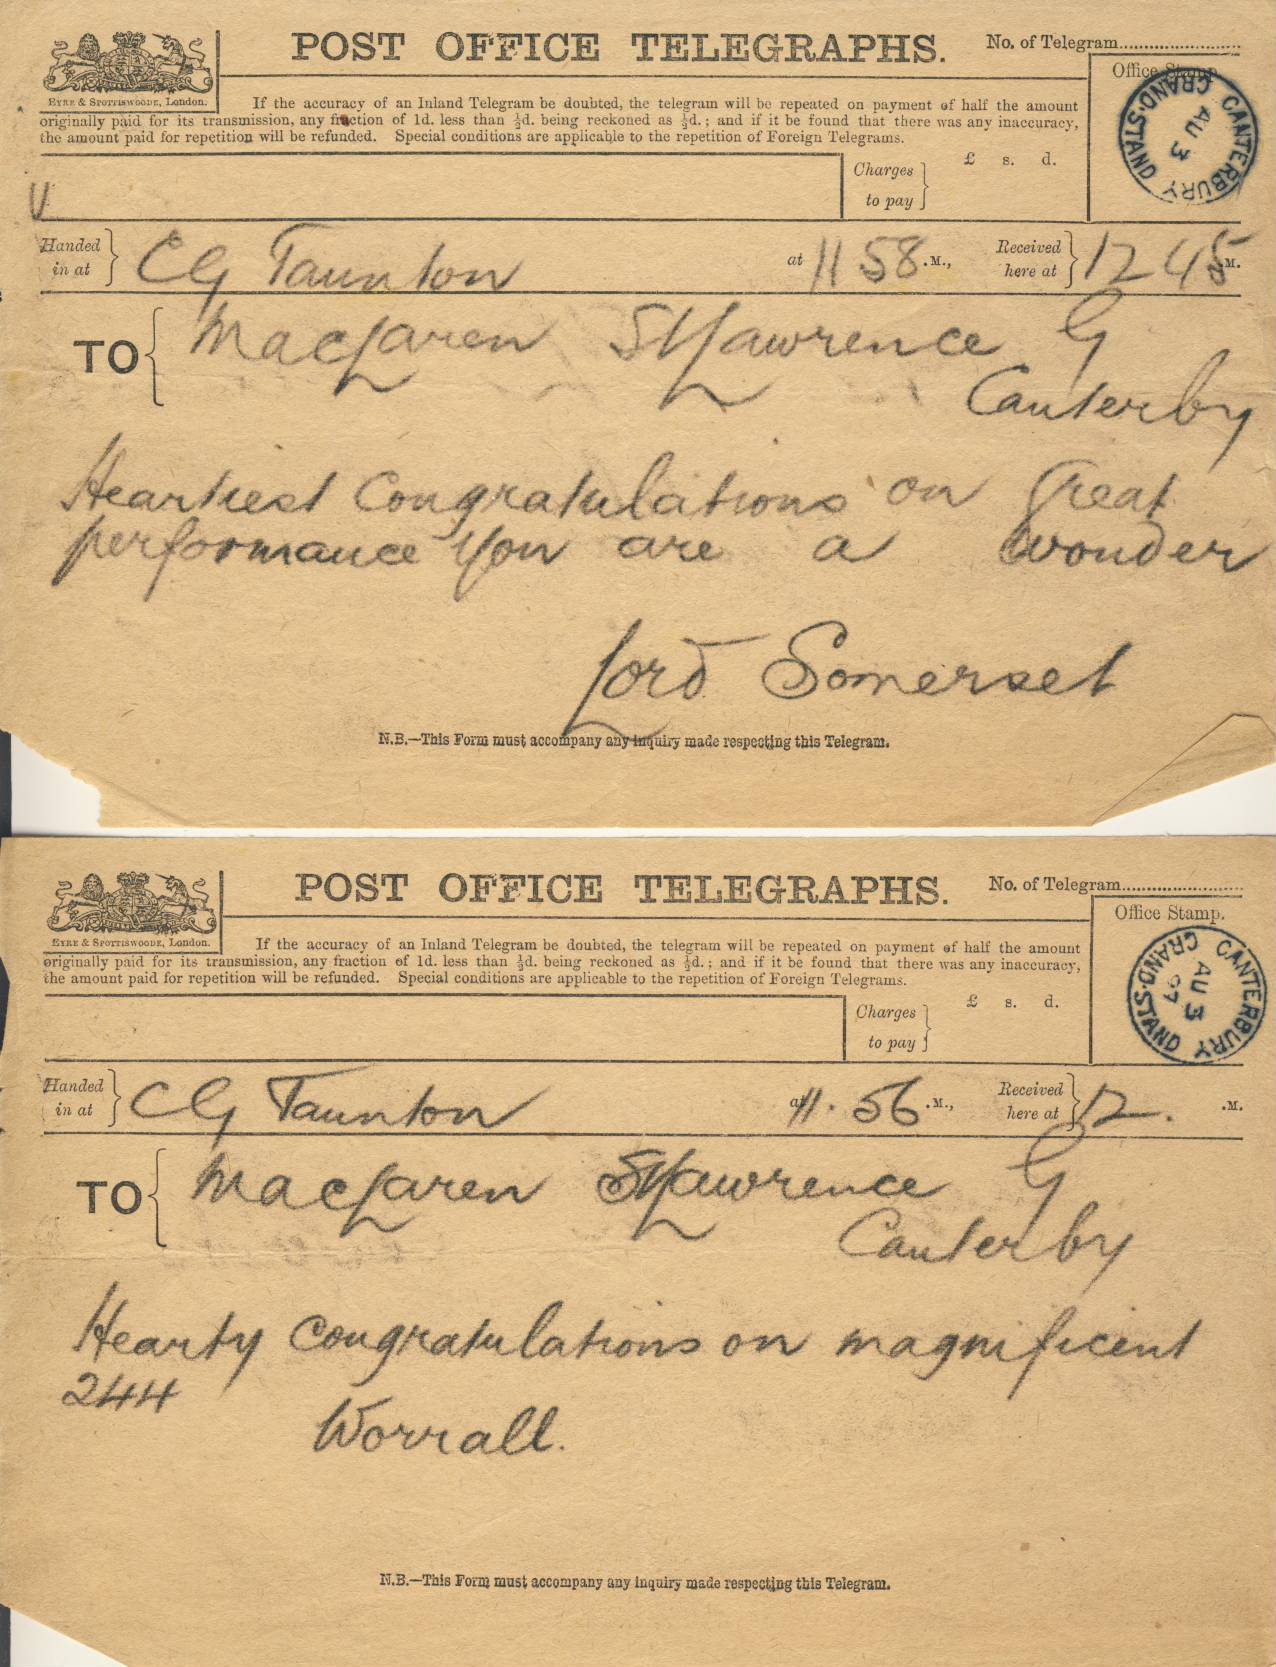 POST OFFICE TELEGRAPHS.
No. of Telegram
Office Stamp.
CANTERBURY GRAND.STAND AU 3
EYRE & SPOTTISWOODE, London.
If the accuracy of an Inland Telegram be doubted, the telegram will be repeated on payment of half the amount
originally paid for its transmission, any fraction of 1d. less than ½d. being reckoned as ½d.; and if it be found that there was any inaccuracy,
the amount paid for repetition will be refunded. Special conditions are applicable to the repetition of Foreign Telegrams.
Charges to pay } £ s. d.
Handed in at } CG Taunton at 11 58 .M., Received here at } 12 45 .M.
TO { MacLaren St Lawrence G
Canterby
Heartiest Congratulations on Great
performance you are a wonder
Lord Somerset
N.B.—This Form must accompany any inquiry made respecting this Telegram.
POST OFFICE TELEGRAPHS.
No. of Telegram
Office Stamp.
CANTERBURY GRAND.STAND AU 3 97
EYRE & SPOTTISWOODE, London.
If the accuracy of an Inland Telegram be doubted, the telegram will be repeated on payment of half the amount
originally paid for its transmission, any fraction of 1d. less than ½d. being reckoned as ½d.; and if it be found that there was any inaccuracy,
the amount paid for repetition will be refunded. Special conditions are applicable to the repetition of Foreign Telegrams.
Charges to pay } £ s. d.
Handed in at } CG Taunton at 11.56 .M., Received here at } 12. .M.
TO { MacLaren St Lawrence G
Canterby
Hearty Congratulations on magnificent
244
Worrall.
N.B.—This Form must accompany any inquiry made respecting this Telegram.